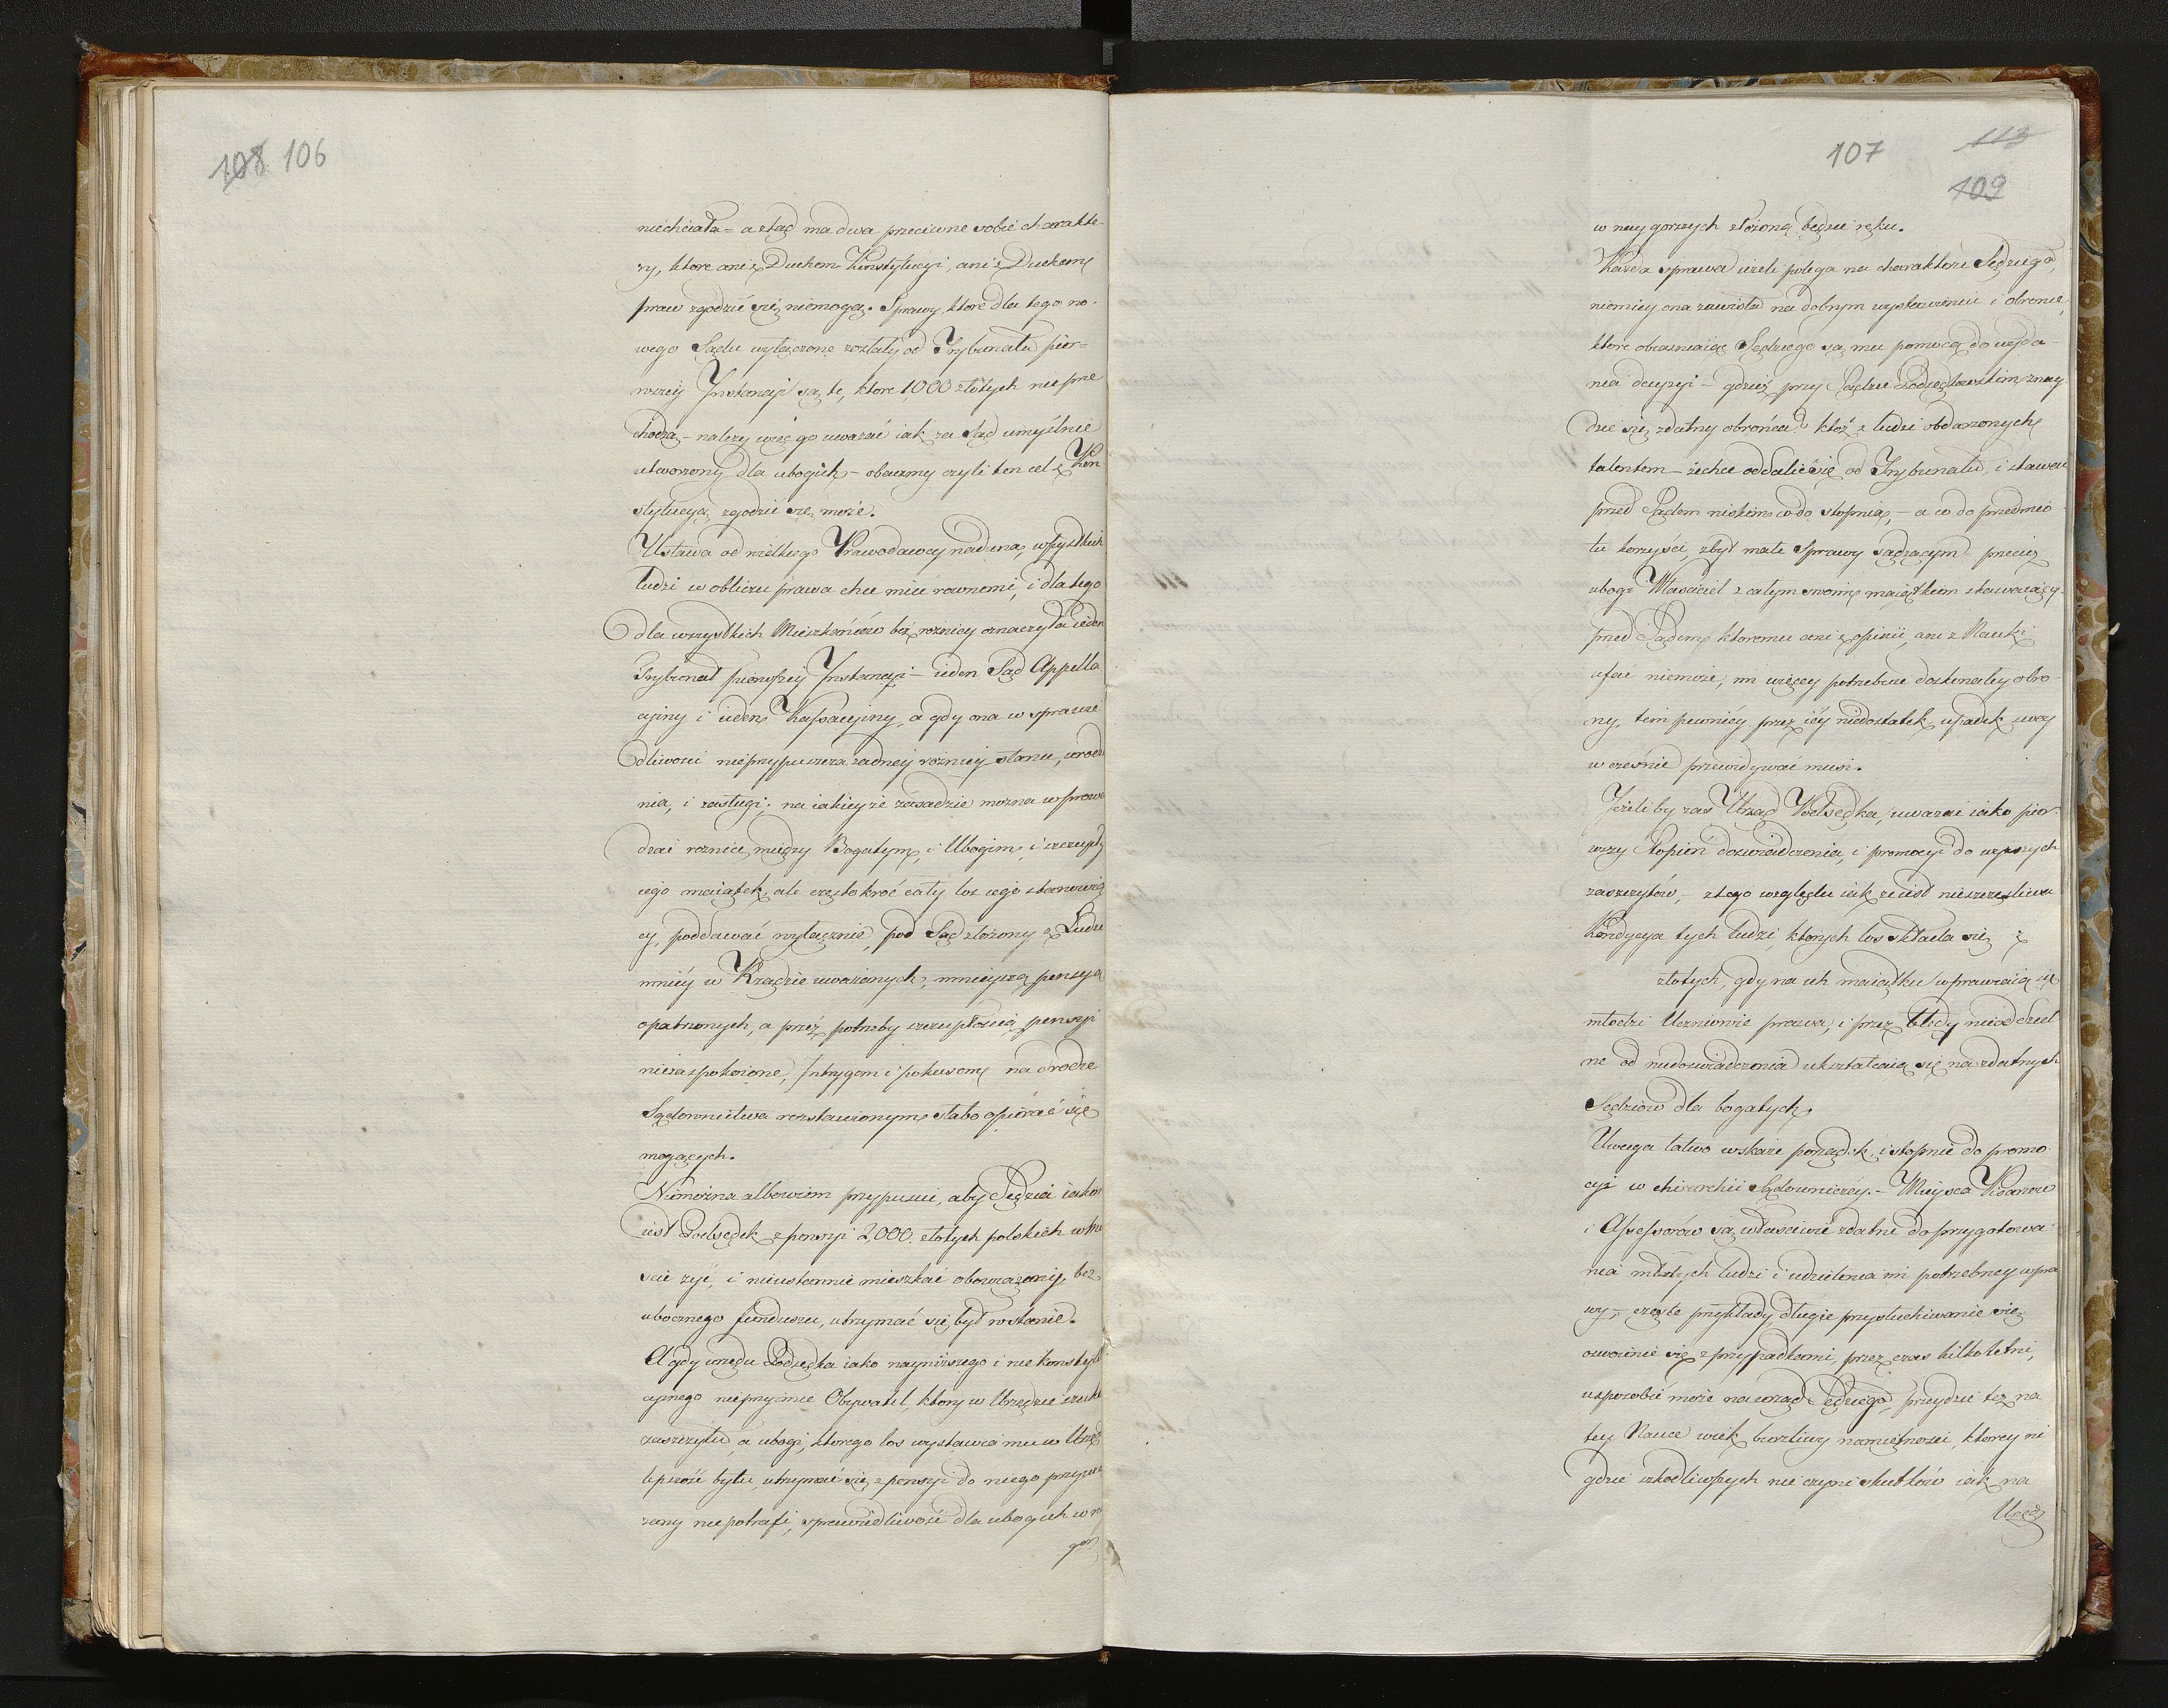 108 106
niechciała = a ztąd ma dwa przeciwne sobie charakte-
ry, ktore ani z Duchem Konstytucyi, ani z Duchem
praw zgodzić się niemogą. Sprawy, ktore dla tego no-
wego Sądu wyłączone zostały od Trybunału pier=
wszey Instancyi są te, ktore 1,000 złotych nie prze
chodzą, - należy więc go uważać iak za Sąd umyślnie
utworzony dla ubogich, - obaczmy czyli ten cel z Kon
stytucyą zgodzić się może.
Ustawa od wielkiego Prawodawcy nadana, wszystkich
ludzi w obliczu prawa chce mieć rownemi, i dla tego
dla wszystkich Mieszkańców bez rożnicy oznaczyła ieden
Trybunał pierwszey Instancyi - ieden Sąd Appella
cyiny i ieden Kassacyiny, a gdy ona w sprawie
dliwości nieprzypuszcza żadney rożnicy stanu, urodze
nia, i zasługi; na iakieyże zasadzie można wprowa
dzać roznicę między Bogatym, i Ubogim, i szczupły
iego maiątek, ale częstokroć cały los iego stanowią
cy, poddawać wyłącznie, pod Sąd złożony z Ludzi
mniéy w Rządzie uważanych, mnieyszą pensyą
opatrzonych, a przez potrzeby szczupłością pensyi
niezaspokoione, Intrygom i pokusom na drodze
Sądownictwa rozstawionym słabo opierać się
mogących.
Niemożna albowiem przypuścić, aby Sędzia iakim
iest Podsędek z pensyi 2,000. złotych polskich w Mie
ście żyć, i nieustannie mieszkać obowiązany, bez
ubocznego funduszu, utrzymać się był w stanie.
A gdy urzędu Podsędka iako nayniższego i nie konstytu
cyinego nieprzyimie Obywatel, ktory w Urzędzie szuka
zaszczytu, a ubogi, ktorego los wystawia mu w Urzęd
lepszość bytu, utrzymać się z pensyi do niego przywią
zany nie potrafi, sprawiedliwość dla ubogich w na
gor
107 113
109
w nay gorszych złożoną będzie ręku.
Każda sprawa ieżeli polega na charakterze Sędziego,
niemniey ona zawisła na dobrym wystawieniu i obronie,
ktore obiaśniaiąc Sędziego są mu pomocą do wyda-
nia decyzyi - gdzież przy Sądzie Podsędkowskim znay
dzie się zdatny obrońca? ktoż z ludzi obdarzonych
talentem - zechce oddalić się od Trybunału, i stawać
przed Sądem niskim co do stopnia, - a co do przedmio
tu korzyści, zbyt małe Sprawy sądzącym - przecież
ubogi Właściciel z całym swoim maiątkiem stawaiący
przed Sądem, ktoremu ani z opinii, ani z Nauki
ufać niemoże, im więcey potrzebuie doskonałey obro-
ny, tem pewniéy przez iéy niedostatek, upadek swoy
w cześnie przewidywać musi.
Jeżeli by zas Urząd Podsędka, uważać iako pier-
wszy stopień doświadczenia, i promocyi do wyższych
zaszczytów, - z tego względu iakże iest nieszczęśliwa
Kondycya tych ludzi, ktorych los składa się z
złotych, gdy na ich maiątku wprawiaią się
młodzi Uczniowie prawa, i przez błędy nieoddziel
ne od niedoświadczenia ukształcaią się na zdatnych
Sędziow dla bogatych.
Uwaga łatwo wskaże porządek i stopnie do promo
cyi w hierarchii Sądowniczéy. - Mieysca Pisarzów
i Assessorów są właściwie zdatne do przygotowa-
nia młodych ludzi i udzielenia im potrzebney wpra
wy, - częste przykłady, długie przysłuchiwanie się
oswoienie się z przypadkami, przez czas kilkoletni,
usposobić może na urząd Sędziego, przeydzie też na
tey Nauce wiek burzliwy namiętności, ktorey ni
gdzie szkodliwszych nie czyni skutków iak na
Urzęd